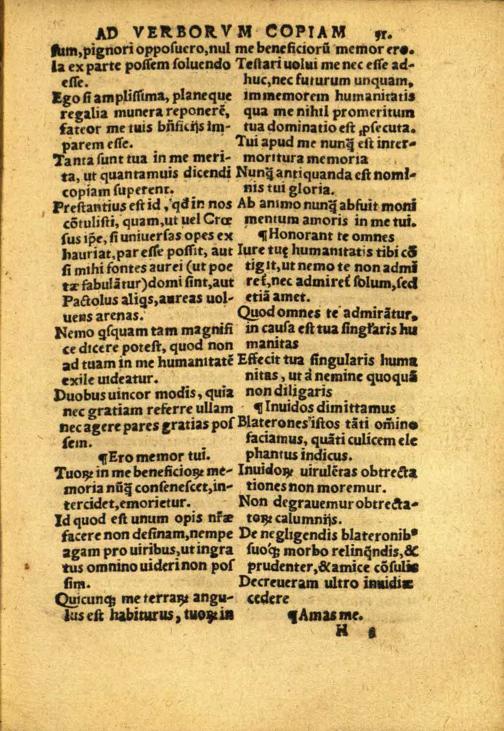 AD VERBORVM COPIAM 91.
sum, pignori opposuero, nul
la ex parte possem soluendo
esse.
Ego si amplissima, planeque
regalia munera reponerẽ,
fateor me tuis bñficijs im-
parem esse.
Tanta sunt tua in me meri-
ta, ut quantamuis dicendi
copiam superent.
Prestantius est id, qđ in nos
cõtulisti, quam, ut uel Crœ
sus ipe, si uniuersas opes ex
hauriat, par esse possit, aut
si mihi fontes aurei (ut poe
tæ fabulãtur) domi sint, aut
Pactolus aliqs, aureas uol-
uens arenas.
Nemo qsquam tam magnifi
ce dicere potest, quod non
ad tuam in me humanitatẽ
exile uideatur.
Duobus uincor modis, quia
nec gratiam referre ullam
nec agere pares gratias pos
sem.
¶Ero memor tui.
Tuoꝝ in me beneficioꝝ me-
moria nũꝗ̃ consenescet, in-
tercidet, emorietur.
Id quod est unum opis nr̃æ
facere non desinam, nempe
agam pro uiribus, ut ingra
tus omnino uideri non pos
sim.
Quicunqꝫ me terraꝝ angu-
lus est habiturus, tuoꝝ in
me beneficiorũ memor ero.
Testari uolui me nec esse ad-
huc, nec futurum unquam,
immemorem humanitatis
qua me nihil promeritum
tua dominatio est ꝓsecuta.
Tui apud me nunꝗ̃ est inter-
moritura memoria
Nunꝗ̃ antiquanda est nomi-
nis tui gloria.
Ab animo nunꝗ̃ abfuit moni
mentum amoris in me tui.
¶Honorant te omnes
Iure tuę humanitatis tibi cõ
tigit, ut nemo te non admi
ret̃, nec admiret̃ solum, sed
etiã amet.
Quod omnes te admirãtur,
in causa est tua singl'aris hu
manitas
Effecit tua singularis huma
nitas, ut à nemine quoquã
non diligaris
¶Inuidos dimittamus
Blaterones istos tãti om̃ino
faciamus, quãti culicem ele
phantus indicus.
Inuidoꝝ uirulẽtas obtrecta
tiones non moremur.
Non degrauemur obtrecta-
toꝝ calumnijs.
De negligendis blateronibꝰ
suoqꝫ morbo relinqñdis, &
prudenter, & amice cõsulis
Decreueram ultro inuidiæ
cedere
¶Amas me.
H